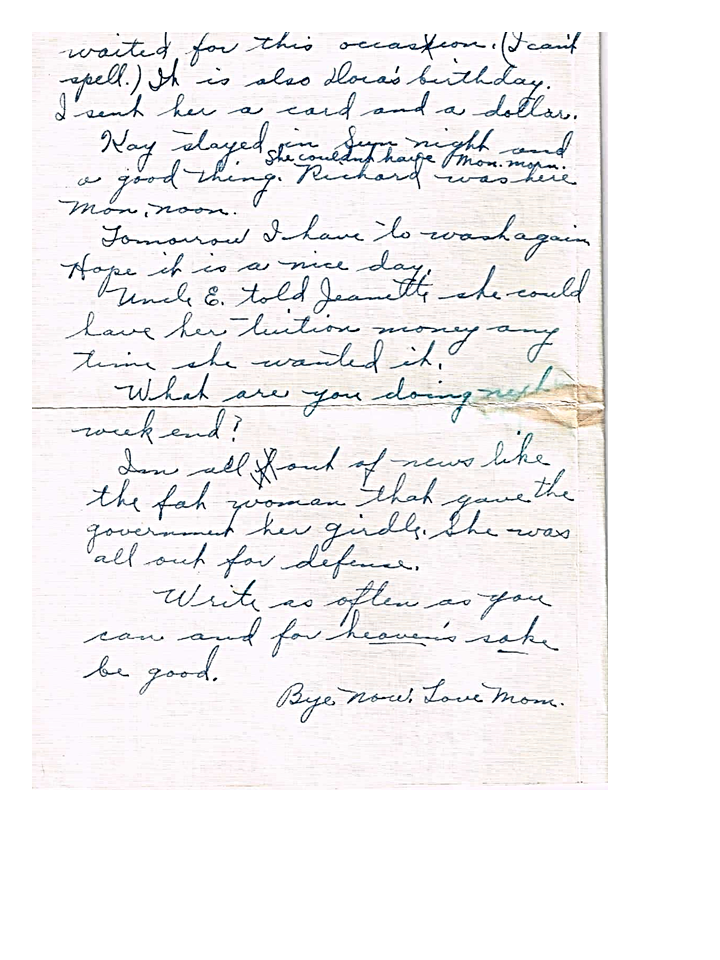 waited for this occasion. (I can't
spell.) It is also Dora's birthday.
I sent her a card and a dollar.
Kay stayed in Sun night and
She couldn't have Mon. morn.
a good thing. Richard was here
Mon. noon.
Tomorrow I have to wash again
Hope it is a nice day.
Uncle E. told Jeanette she could
have her tuition money any
time she wanted it.
What are you doing next
week end?
Im all out of news like
the fat woman that gave the
government her girdle. She was
all out for defense.
Write as often as you
can and for heaven's sake
be good.
Bye now. Love Mom.